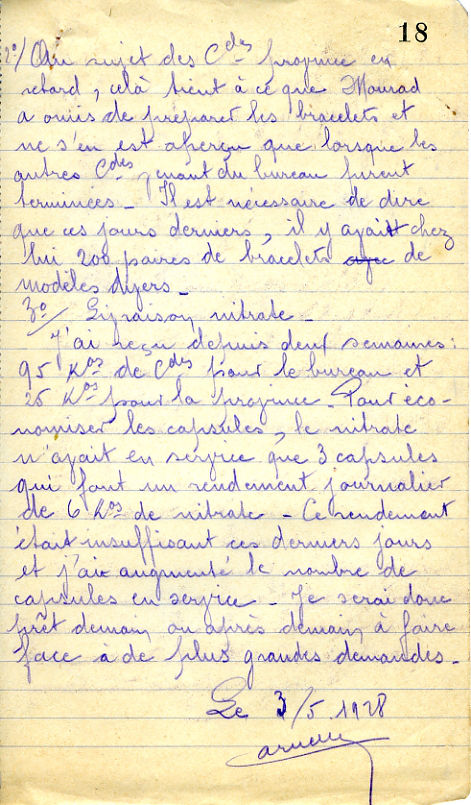 18
2°/ Au sujet des Cdes province en
retard, celà tient à ce que Mourad
a omis de préparer les bracelets et
ne s'en est aperçu que lorsque les
autres Cdes venant du bureau furent
terminées - Il est nécessaire de dire
que ces jours derniers, il y avait chez
lui 200 paires de bracelets avec de
modèles divers -
3°/ Livraison nitrate -
J'ai reçu depuis deux semaines :
95 Kos de Cdes pour le bureau et
25 Kos pour la province - Pour éco-
nomiser les capsules, le nitrate
n'avait en service que 3 capsules
qui font un rendement journalier
de 6 Kos de nitrate - Ce rendement
était insuffisant ces derniers jours
et j'ai augmenté le nombre de
capsules en service - Je serai donc
prêt demain ou après demain à faire
face à de plus grandes demandes -
Le 3/5 1928